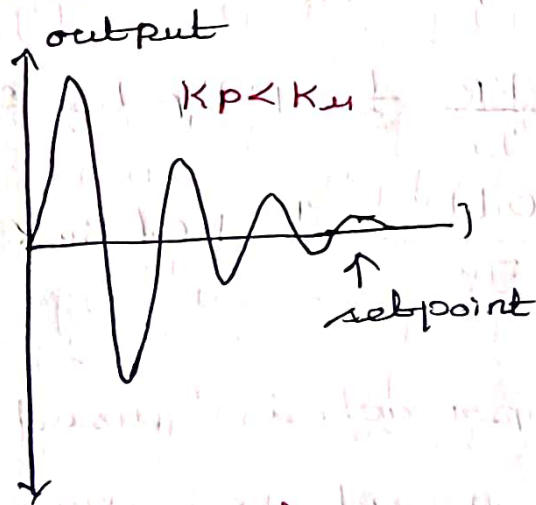 output
Kp < Ku
setpoint